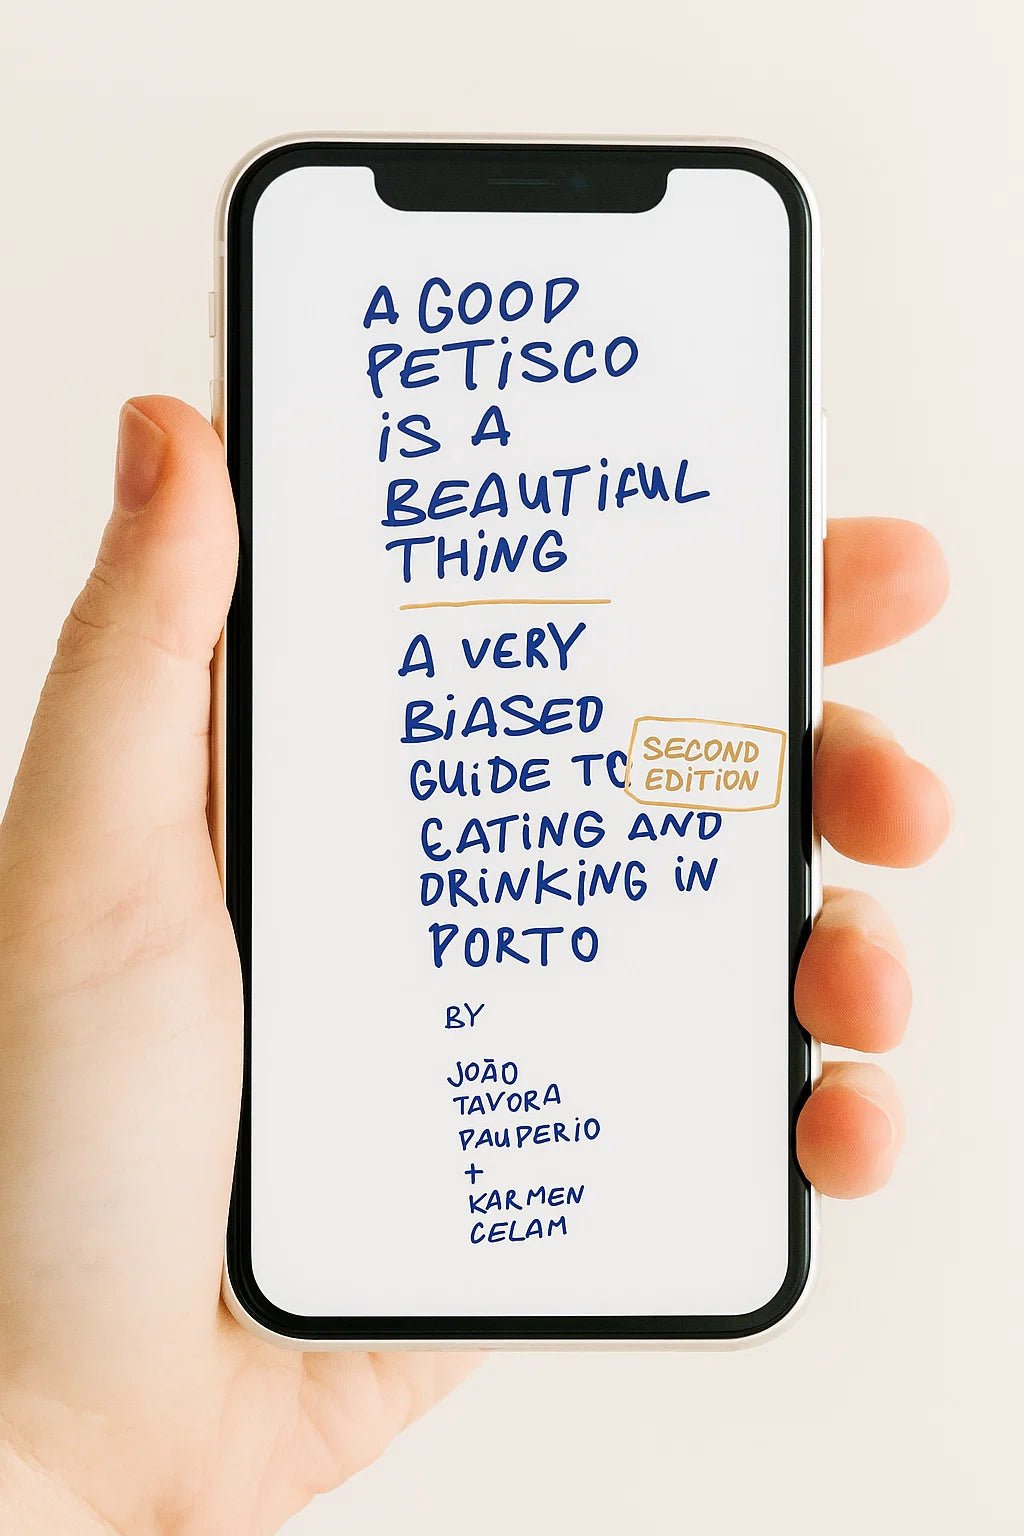 A GOOD
PETISCO
IS A
BEAUTIFUL
THING
A VERY
BIASED
GUIDE TO
SECOND
EDITION
EATING AND
DRINKING IN
PORTO
BY
JOÃO
TAVORA
PAUPERIO
+
KARMEN
CELAM